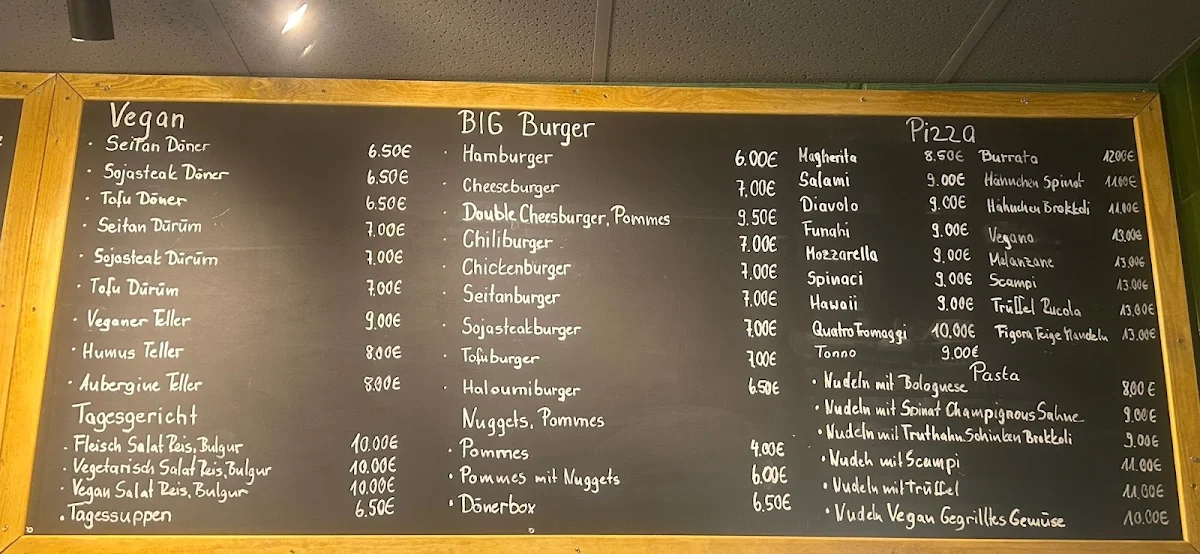 Vegan
· Seitan Döner 6.50€
· Sojasteak Döner 6.50€
· Tofu Döner 6.50€
· Seitan Dūrūm 7.00€
· Sojasteak Dūrūm 7.00€
· Tofu Dūrūm 7.00€
· Veganer Teller 9.00€
· Humus Teller 8.00€
· Aubergine Teller 8.00€
Tagesgericht
· Fleisch Salat Reis, Bulgur 10.00€
· Vegetarisch Salat Reis, Bulgur 10.00€
· Vegan Salat Reis, Bulgur 10.00€
· Tagessuppen 6.50€
BIG Burger
· Hamburger 6.00€
· Cheeseburger 7,00€
· Double Cheesburger, Pommes 9.50€
· Chiliburger 7.00€
· Chickenburger 7.00€
· Seitanburger 7.00€
· Sojasteakburger 7.00€
· Tofuburger 7.00€
· Haloumiburger 6.50€
Nuggets, Pommes
· Pommes 4.00€
· Pommes mit Nuggets 6.00€
· Dönerbox 6.50€
Pizza
Magherita 8.50€
Salami 9.00€
Diavolo 9.00€
Funghi 9.00€
Mozzarella 9.00€
Spinaci 9.00€
Hawaii 9.00€
Quatro Fromaggi 10.00€
Tonno 9.00€
Burrata 12.00€
Hähnchen Spinat 11.00€
Hähnchen Brokkoli 11.00€
Vegana 13.00€
Melanzane 13.00€
Scampi 13.00€
Trüffel Rucola 13.00€
Figora Feige Mandeln 13.00€
Pasta
· Nudeln mit Bolognese 8,00€
· Nudeln mit Spinat Champignons Sahne 9.00€
· Nudeln mit Truthahn Schinken Brokkoli 9.00€
· Nudeln mit Scampi 11.00€
· Nudeln mit Trüffel 11,00€
· Nudeln Vegan Gegrilltes Gemüse 10.00€